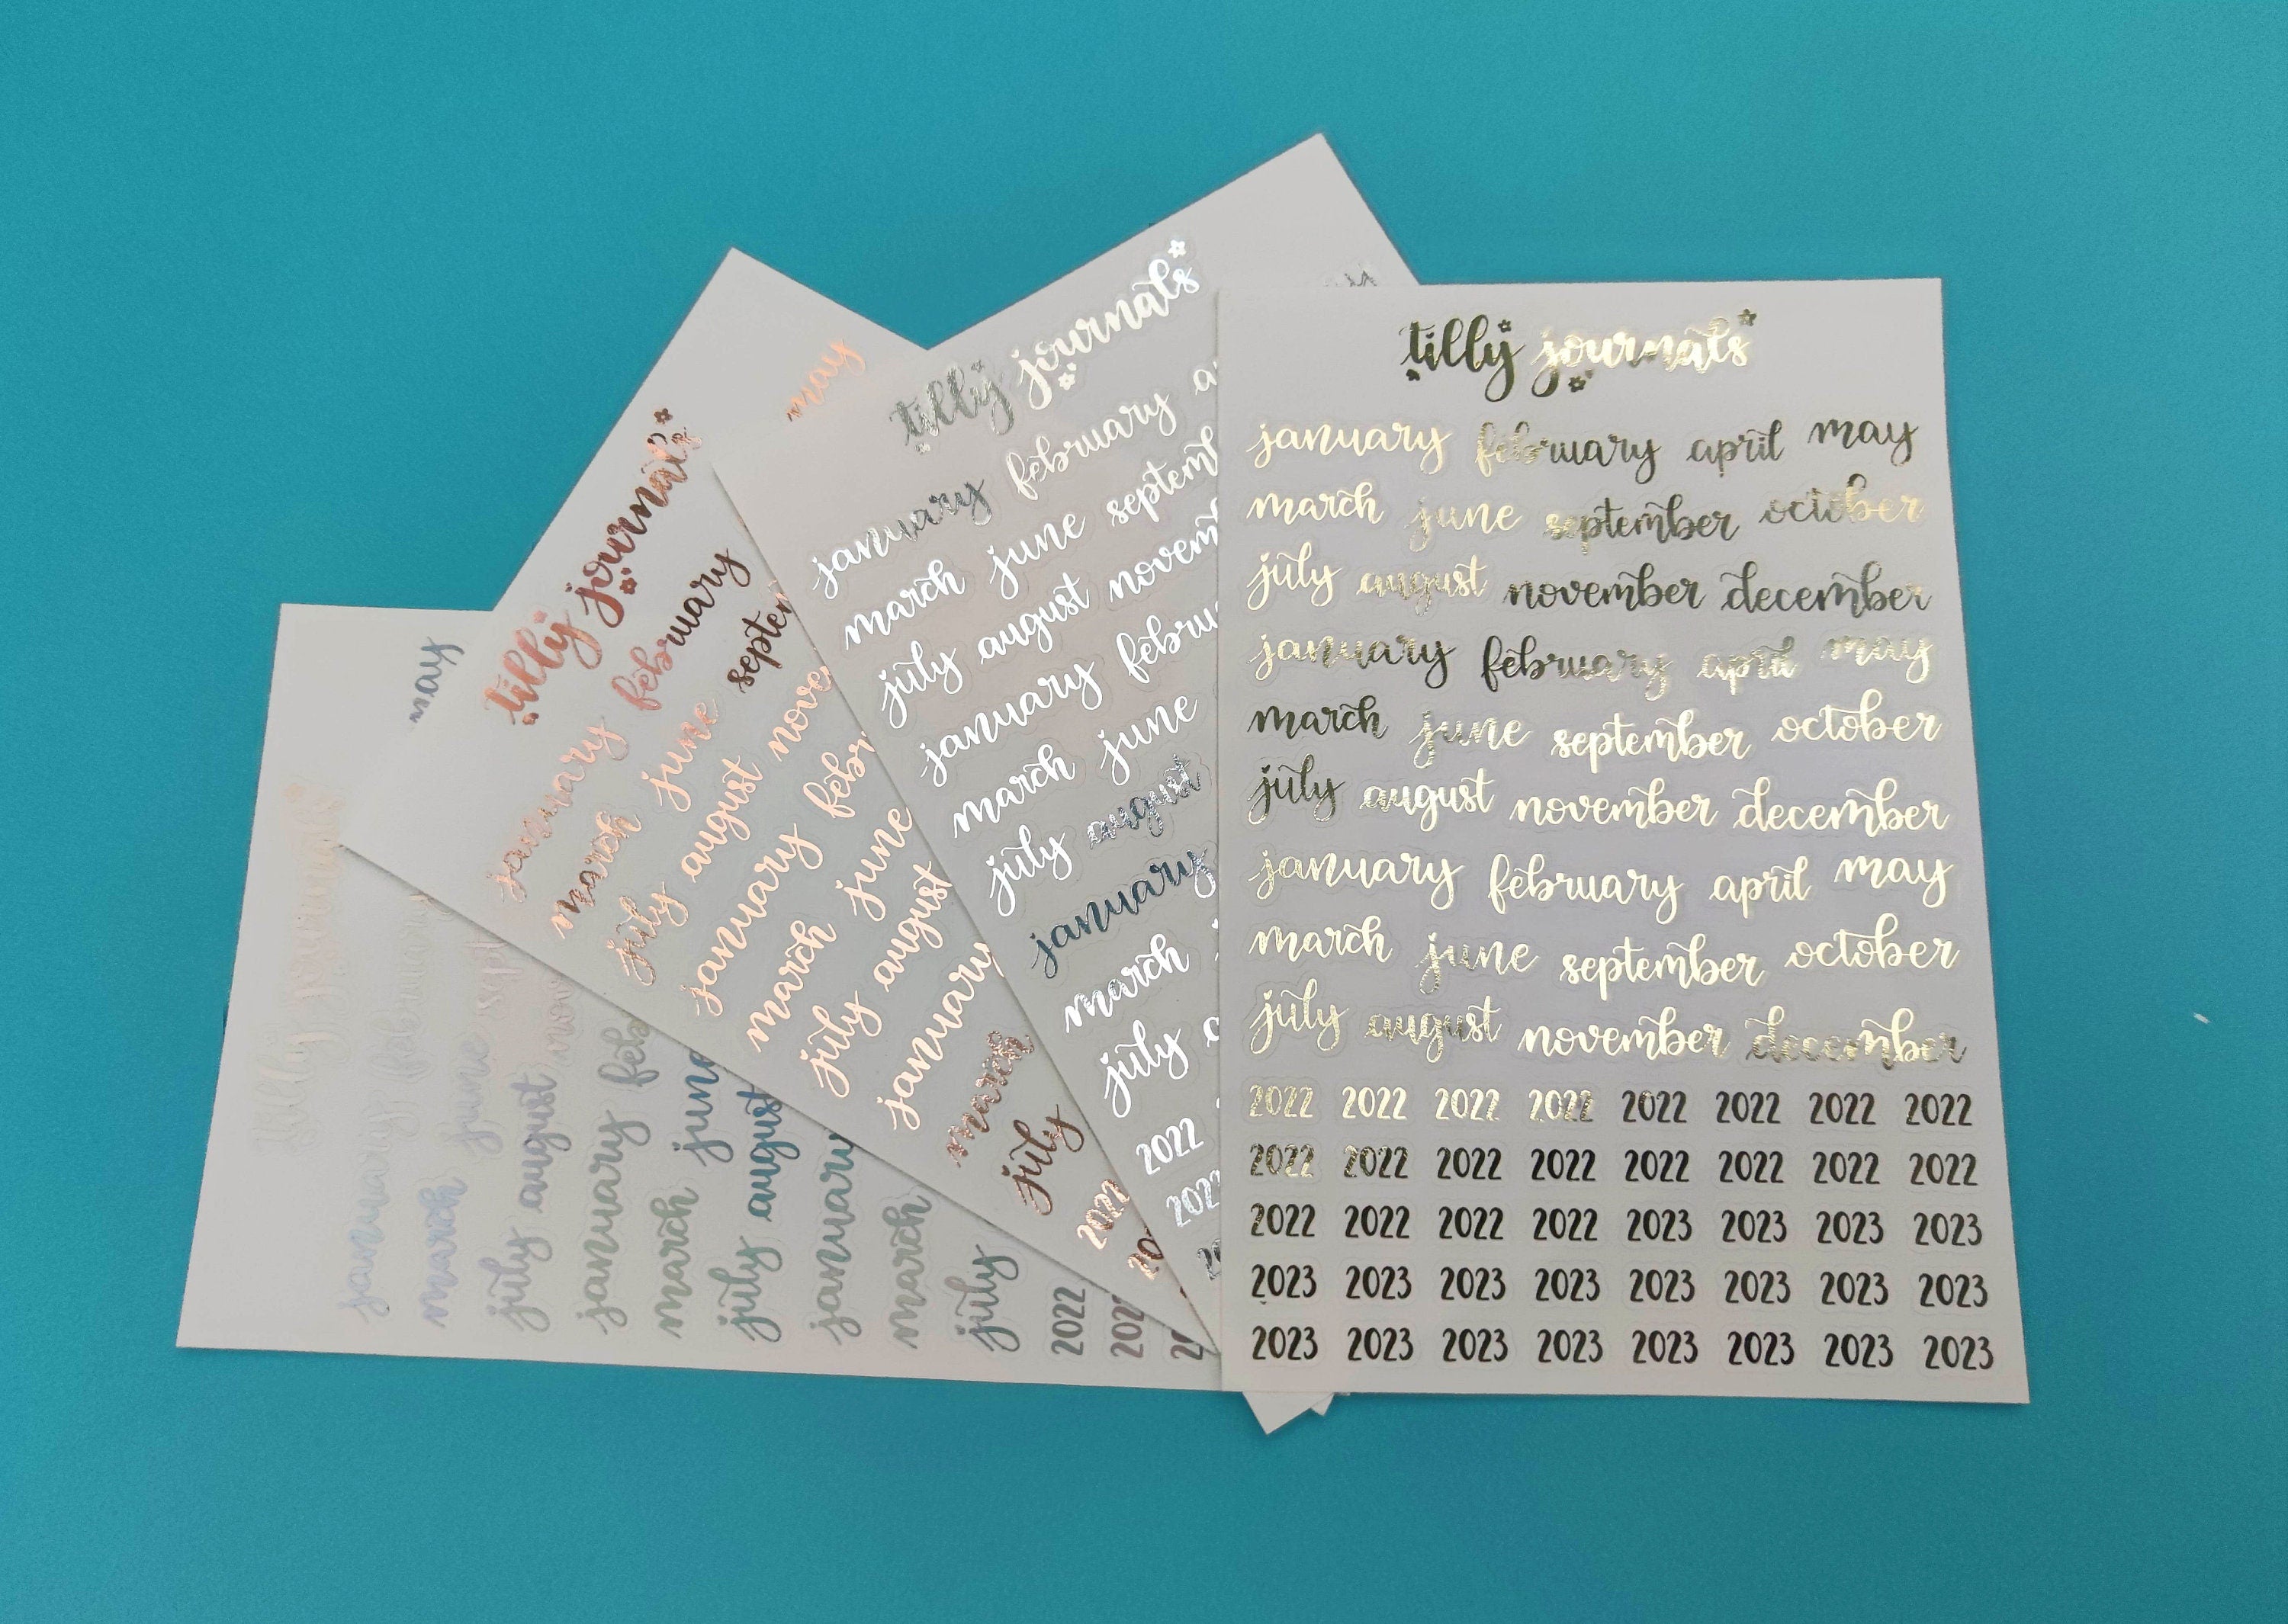 tilly journals
january february april may
march june september october
july august november december
january february april may
march june september october
july august november december
january february april may
march june september october
july august november december
2022 2022 2022 2022 2022 2022 2022 2022
2022 2022 2022 2022 2022 2022 2022 2022
2022 2022 2022 2022 2023 2023 2023 2023
2023 2023 2023 2023 2023 2023 2023 2023
2023 2023 2023 2023 2023 2023 2023 2023
tilly journals
january february
march june
july august
january
march june
july august
january
march
july
2022
may
tilly journals
january february
march june
july august
january
march june
july august
january
march
july
2022
may
tilly journals
january february
march june
july august
january
march june
july august
january
march
july
2022